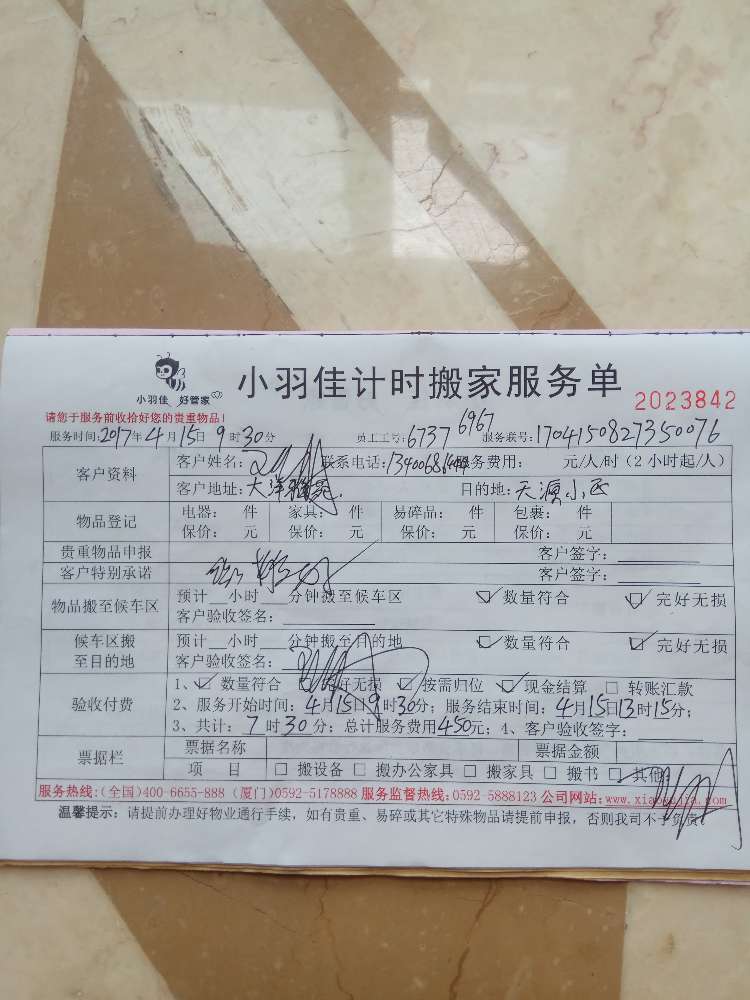 小羽佳 好管家
小羽佳计时搬家服务单
2023842
请您于服务前收拾好您的贵重物品！
服务时间:2017年4月15日9时30分 员工工号:6737 6967 服务联号:1704150827350076
客户资料
客户姓名: 联系电话: 服务费用: 元/人/时(2小时起/人)
客户地址:大洋 目的地:天源小区
物品登记
电器: 件 家具: 件 易碎品: 件 包裹: 件
保价: 元 保价: 元 保价: 元 保价: 元
贵重物品申报 客户签字:
客户特别承诺 客户签字:
物品搬至候车区
预计 小时 分钟搬至候车区 ☑数量符合 ☑完好无损
客户验收签名:
候车区搬
至目的地
预计 小时 分钟搬至目的地 ☑数量符合 ☑完好无损
客户验收签名:
验收付费
1、☑数量符合 ☑完好无损 ☑按需归位 ☑现金结算 □转账汇款
2、服务开始时间:4月15日9时30分; 服务结束时间:4月15日13时15分;
3、共计:7时30分; 总计服务费用450元; 4、客户验收签字:
票据栏
票据名称 票据金额
项 目 □搬设备 □搬办公家具 □搬家具 □搬书 □其他
服务热线:(全国)400-6655-888 (厦门)0592-5178888 服务监督热线:0592-5888123 公司网站:www.xiaoyujia.com
温馨提示: 请提前办理好物业通行手续, 如有贵重、易碎或其它特殊物品请提前申报, 否则我司不予负责。